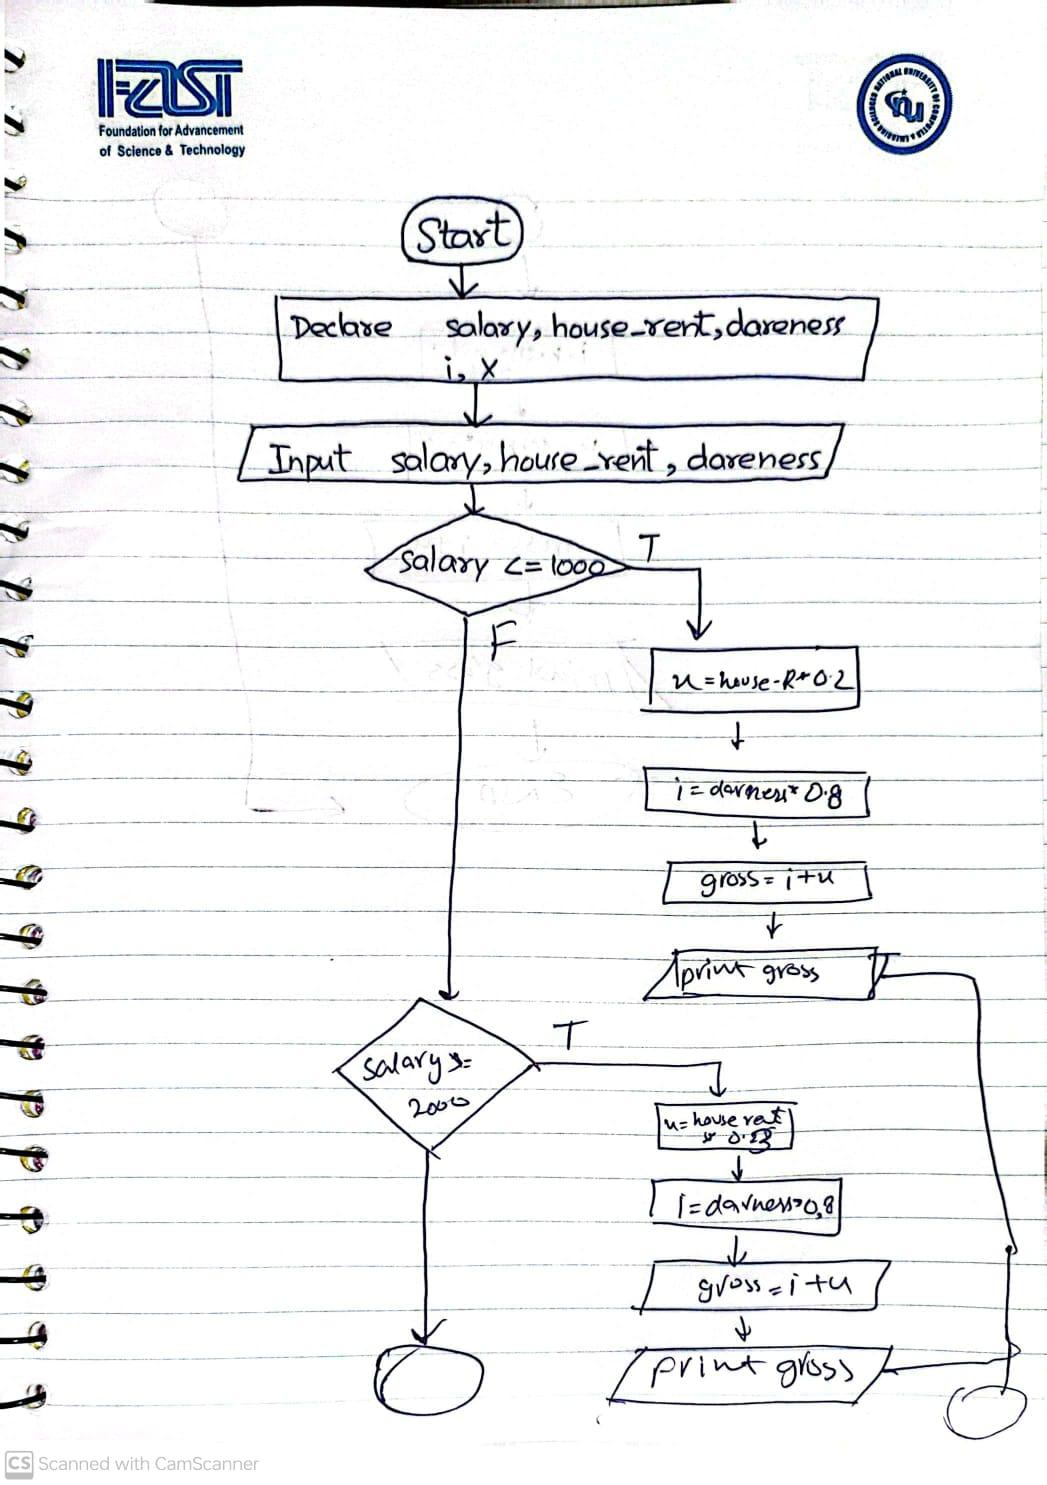 FAST
Foundation for Advancement
of Science & Technology
NATIONAL UNIVERSITY OF COMPUTER & EMERGING SCIENCES
nu
Start
Declare salary, house_rent, dareness
i, x
Input salary, house_rent, dareness
salary <= 1000
T
F
u = house-R * 0.2
i = darness * 0.8
gross = i+u
print gross
salary
2000
T
u = house rent
i = darness * 0.8
gross = i + u
print gross
CS Scanned with CamScanner